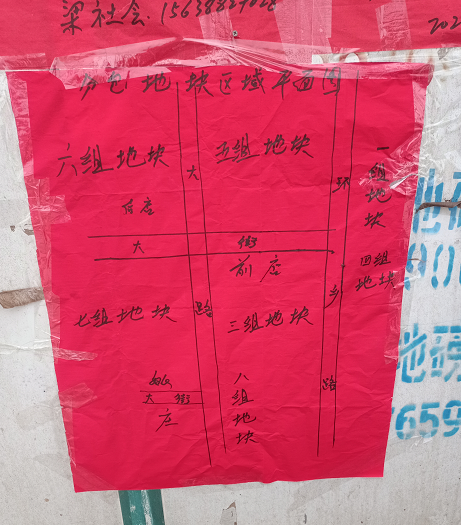 梁社会.15638829028
202
发包地块区域平面图
六组地块
大路
五组地块
环乡路
一组地块
后庄
大街
前庄
四组地块
七组地块
三组地块
大街
庄
八组地块
地磅
659